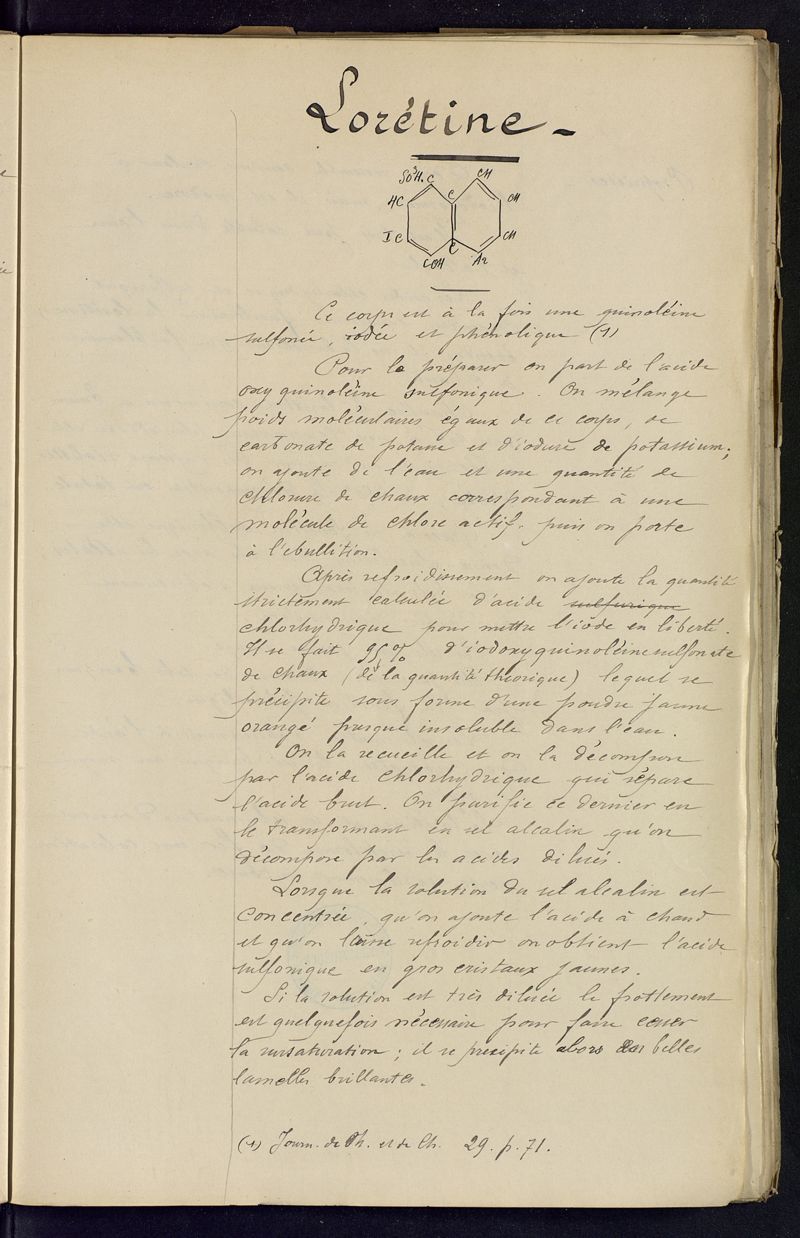 Lorétine -
SO³H.C CH
HC C CH
IC C CH
COH Az
Ce corps est à la fois une quinoléine
sulfonée, iodée et phénolique (1)
Pour le préparer on part de l'acide
oxyquinoléine sulfonique. On mélange
poids moléculaires égaux de ce corps, de
carbonate de potasse et d'iodure de potassium;
on ajoute de l'eau et une quantité de
chlorure de chaux correspondant à une
molécule de chlore actif. puis on porte
à l'ebullition.
Après refroidissement on ajoute la quantité
strictement calculée d'acide sulfurique
chlorhydrique pour mettre l'iode en liberté.
Il se fait 95% d'iodoxyquinoléinesulfonate
de chaux (de la quantité théorique) lequel se
précipite sous forme d'une poudre jaune
orangé presque insoluble dans l'eau.
On la recueille et on la décompose
par l'acide chlorhydrique qui sépare
l'acide brut. On purifie ce dernier en
le transformant en sel alcalin qu'on
décompose par les acides dilués.
Lorsque la solution du sel alcalin est
concentrée, qu'on ajoute l'acide à chaud
et qu'on laisse refroidir on obtient l'acide
sulfonique en gros cristaux jaunes.
Si la solution est très diluée le frottement
est quelquefois nécessaire pour faire cesser
la sursaturation; il se precipite alors des belles
lamelles brillantes.
(1) Journ. de Ph. et de Ch. 29. p. 71.